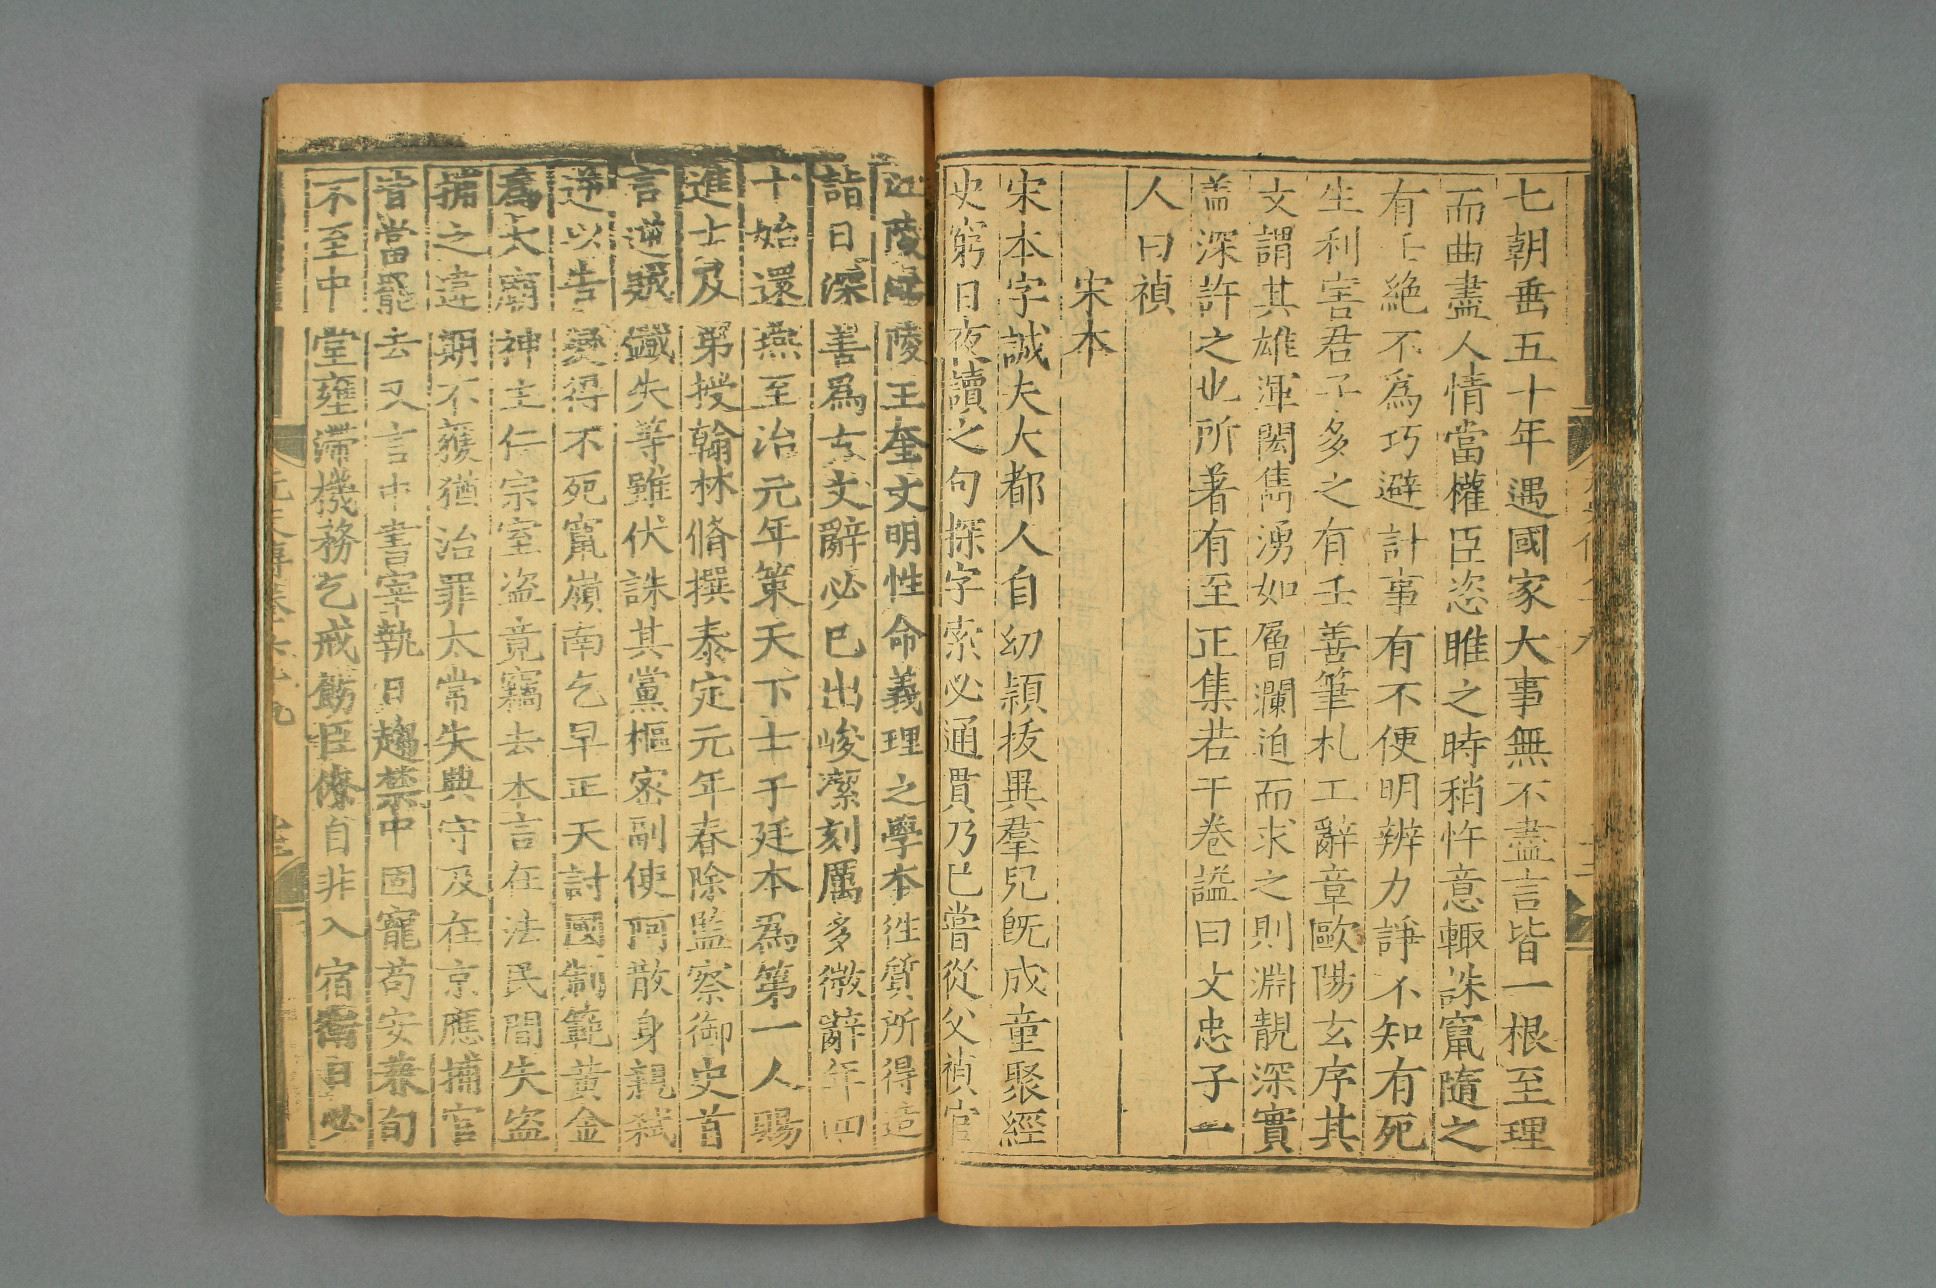 七朝垂五十年遇國家大事無不盡言皆一根至理
而曲盡人情當權臣恣睢之時稍忤意輙誅竄隨之
有壬絶不爲巧避計事有不便明辨力諍不知有死
生利害君子多之有壬善筆札工辭章歐陽玄序其
文謂其雄渾閎雋湧如層瀾迫而求之則淵靚深實
盖深許之也所著有至正集若干卷謚曰文忠子一
人曰禎
宋本
宋本字誠夫大都人自幼穎抜異羣兒旣成童聚經
史窮日夜讀之句探字索必通貫乃已嘗從父禎官
江陵江陵王奎文明性命義理之學本徃質所得造
詣日深善爲古文辭必巳出峻潔刻厲多微辭年四
十始還燕至治元年策天下士于廷本爲第一人賜
進士及第授翰林脩撰泰定元年春除監察御史首
言逆賊鐵失等雖伏誅其黨樞密副使阿散身親弑
逆以告變得不死竄嶺南乞早正天討國制範黃金
爲太廟神主仁宗室盗竟竊去本言在法民間失盗
捕之違期不獲猶治罪太常失典守及在京應捕官
皆當罷去又言中書宰執日趨禁中固寵苟安兼旬
不至中堂壅滯機務乞戒飭臣僚自非入宿衛日必
元史傳卷六十九